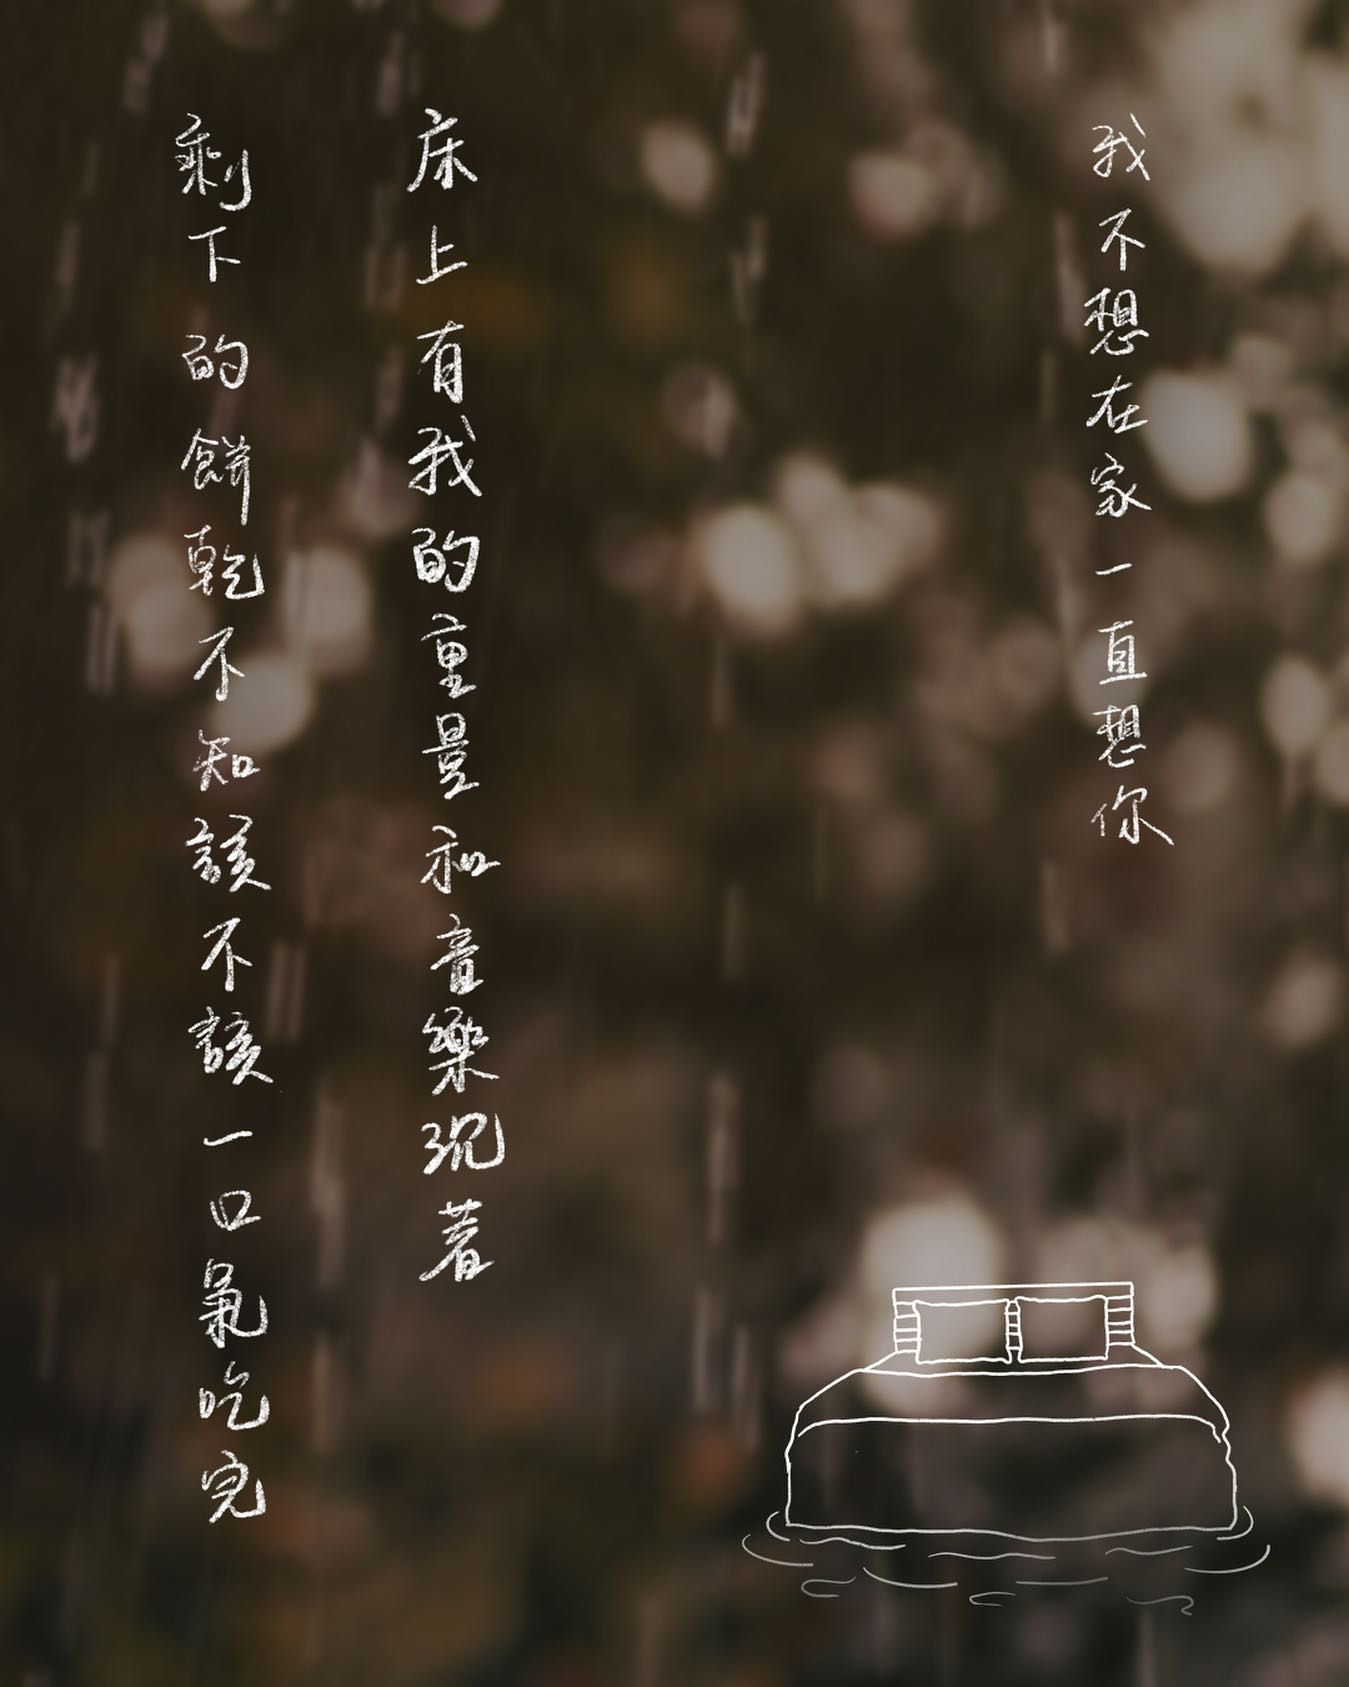 我不想在家一直想你
床上有我的重量和音樂沉著
剩下的餅乾不知該不該一口氣吃完